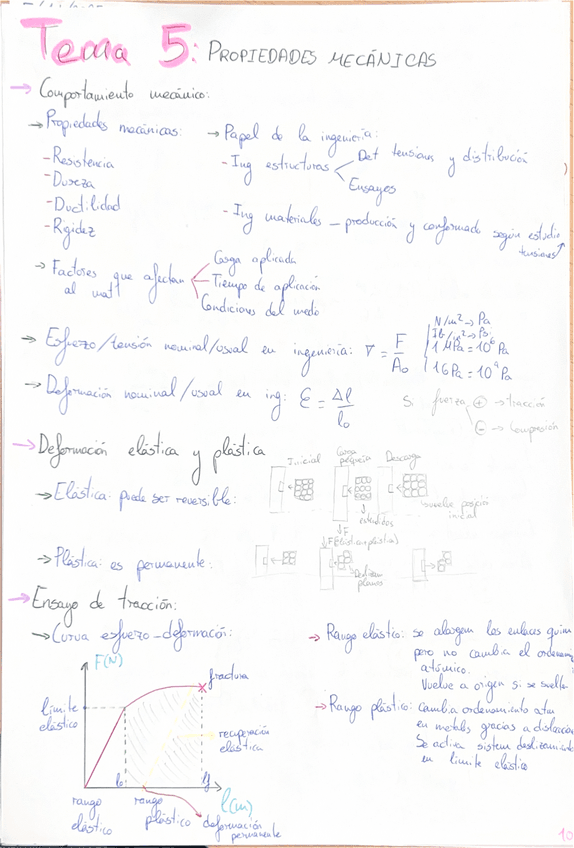 Tema 5: PROPIEDADES MECÁNICAS
→ Comportamiento mecánico:
→ Propiedades mecánicas:
- Resistencia
- Dureza
- Ductilidad
- Rigidez
→ Papel de la ingeniería:
- Ing estructuras
Det tensions y distribución
Ensayos
- Ing materiales - producción y conformado según estudio
tensiones
→ Factores que afectan
al matl
Carga aplicada
Tiempo de aplicación
Condiciones del medio
→ Esfuerzo/tensión nominal/usual en ingeniería: ∇ = F/A₀
N/m² → Pa
lb/in² → Psi
1 MPa = 10⁶ Pa
1 GPa = 10⁹ Pa
→ Deformación nominal/usual en ing: ε = Δl/l₀
Si fuerza
⊕ → tracción
⊖ → compresión
→ Deformación elástica y plástica
→ Elástica: puede ser reversible:
Inicial
Carga pequeña
Descarga
↓F
extendidos
vuelve posición
inicial
→ Plástica: es permanente:
↓F (Elástica + plástica)
Deslizan
planos
→ Ensayo de tracción:
→ Curva esfuerzo - deformación:
F(N)
límite
elástico
fractura
recuperación
elástica
l₀
lf
l(m)
rango
elástico
rango
plástico
deformación
permanente
→ Rango elástico: se alargan los enlaces quím
pero no cambia el ordenam
atómico.
Vuelve a origen si se suelta
→ Rango plástico: cambia ordenamiento atm
en metales gracias a dislocación
Se activa sistem deslizamiento
en límite elástico
10